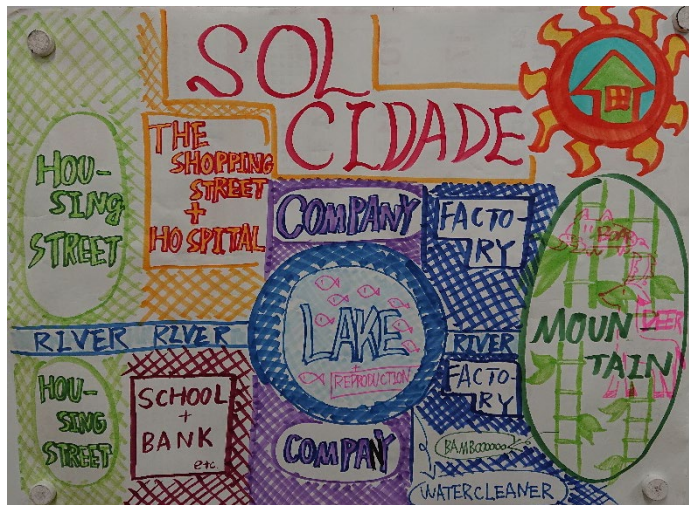 SOL
CIDADE
HOU-
SING
STREET
THE
SHOPPING
STREET
+
HOSPITAL
COMPANY
FACTO-
RY
BOAR
DEER
MOUN-
TAIN
RIVER RIVER
LAKE
+
REPRODUCTION
RIVER
FACTO-
RY
HOU-
SING
STREET
SCHOOL
+
BANK
etc
COMPANY
BAMBOOOOOO
WATERCLEANER